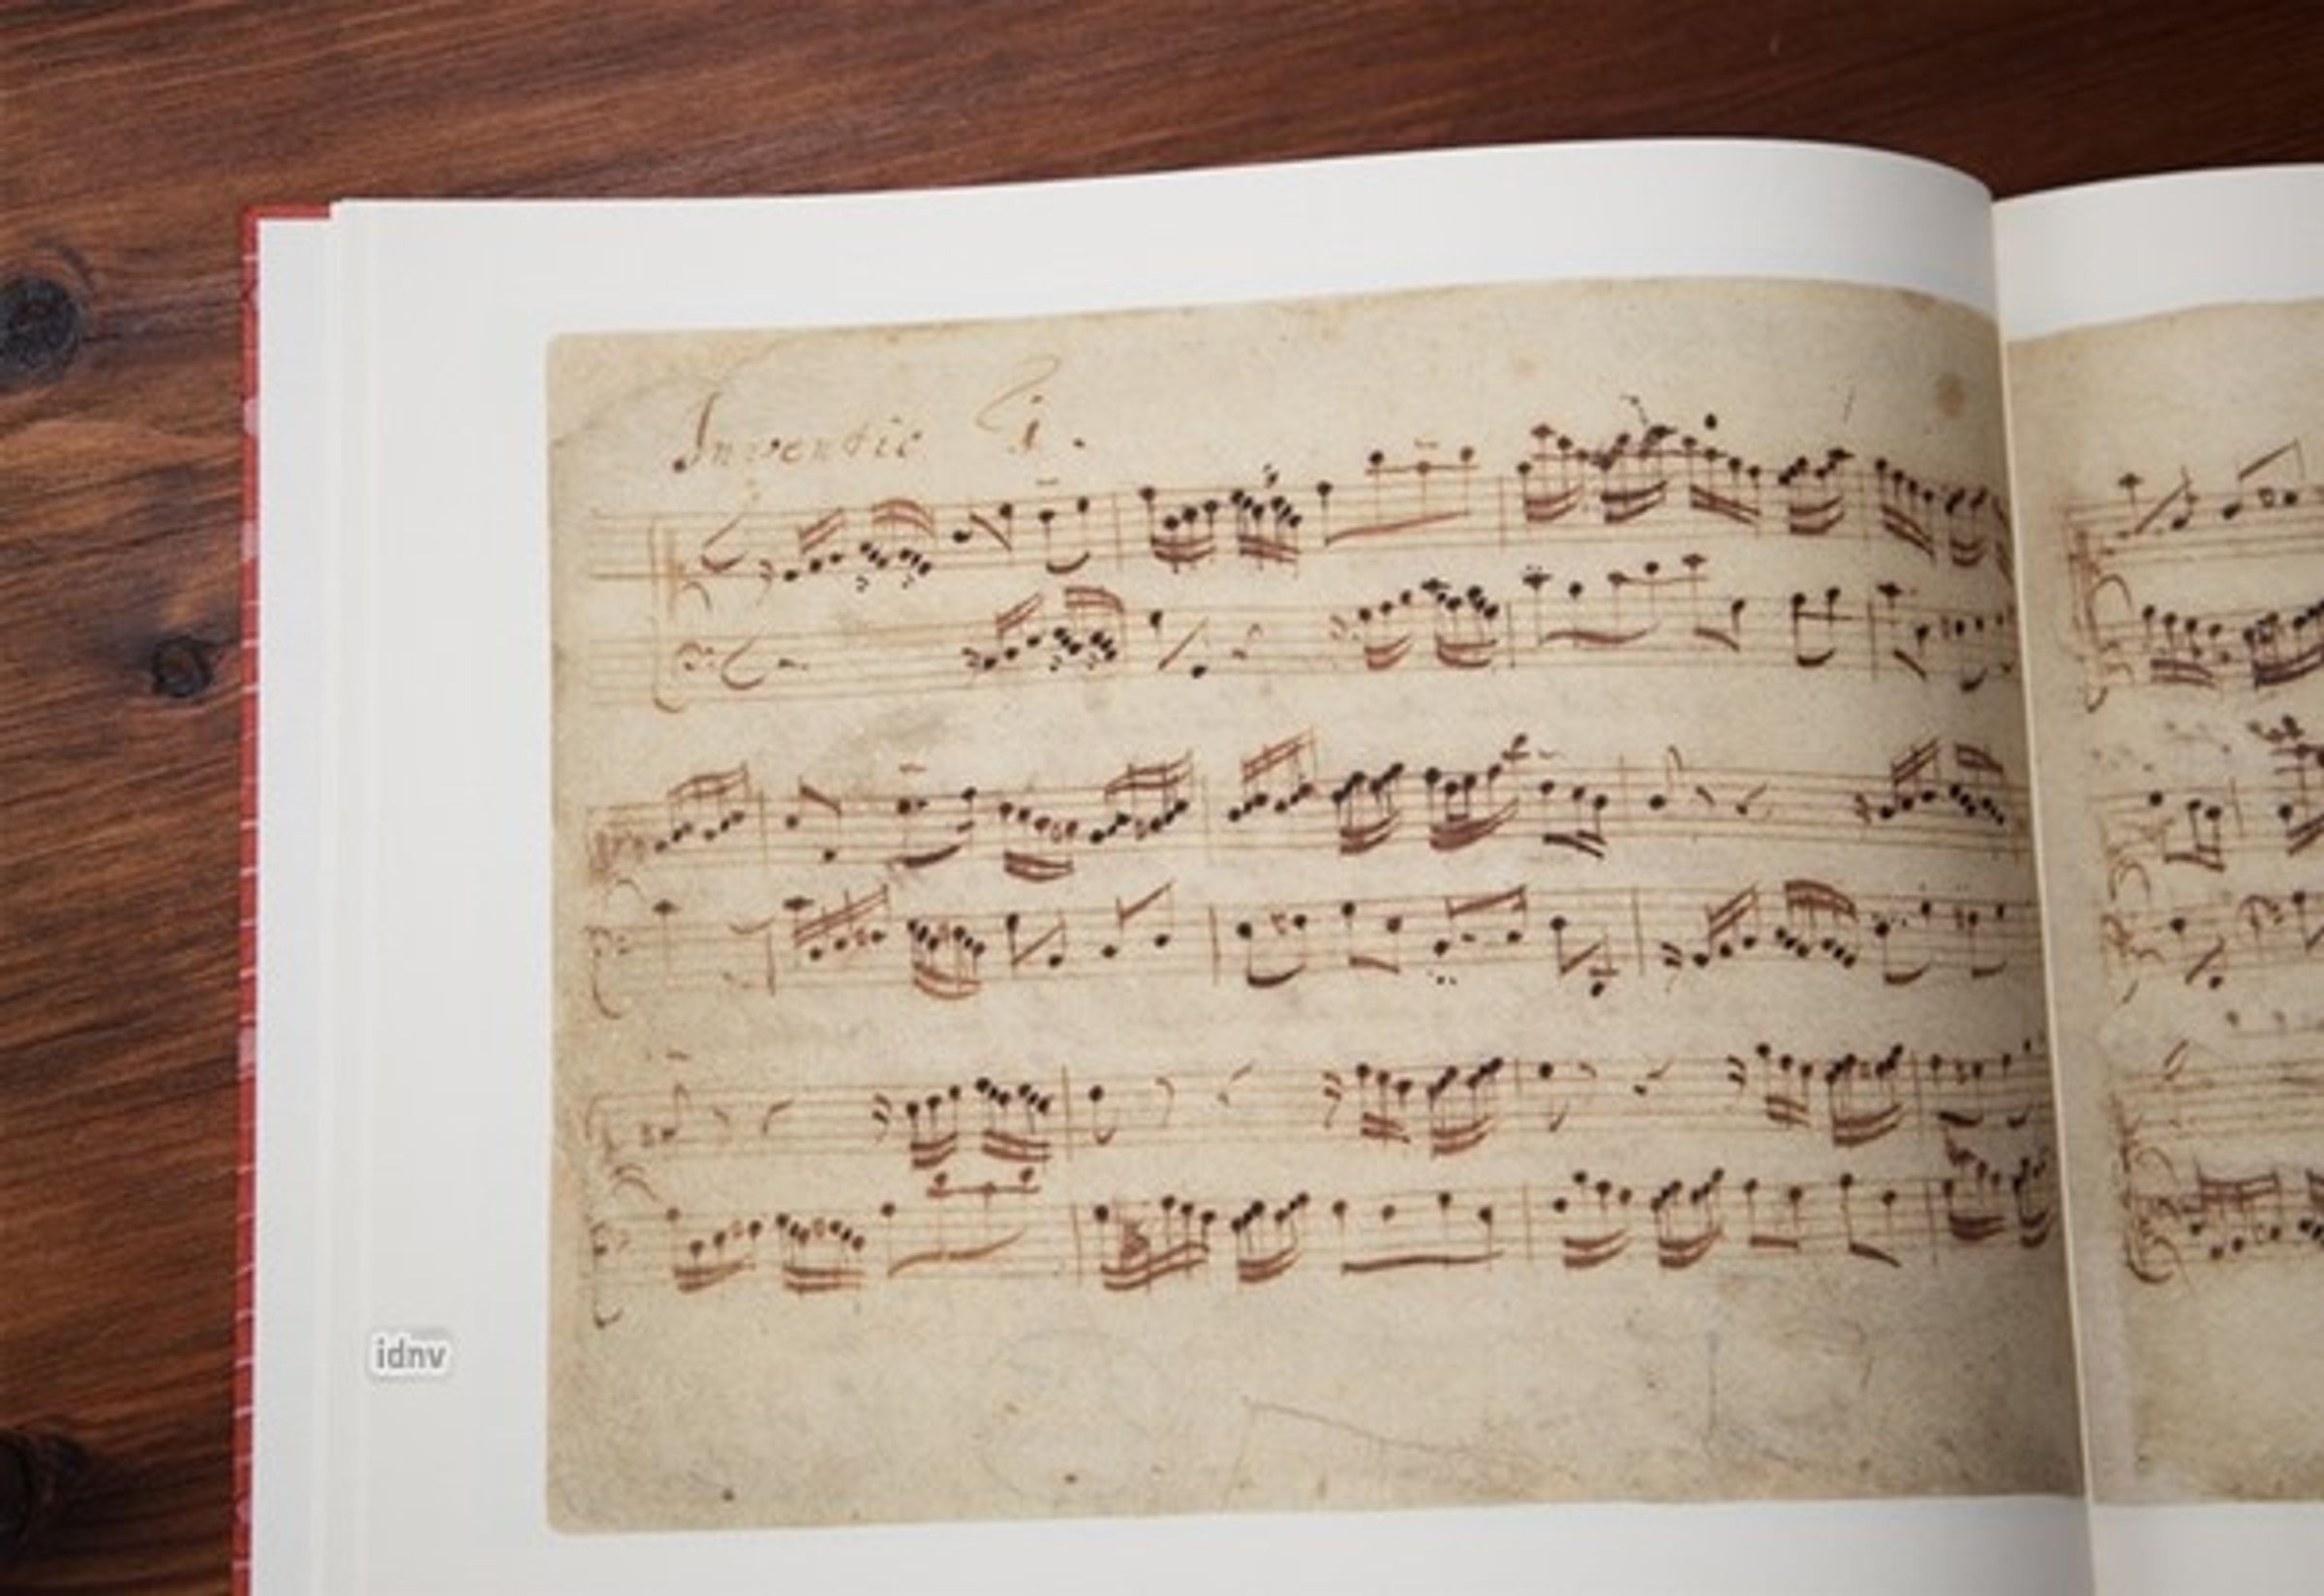 Inventio 1.
idnv